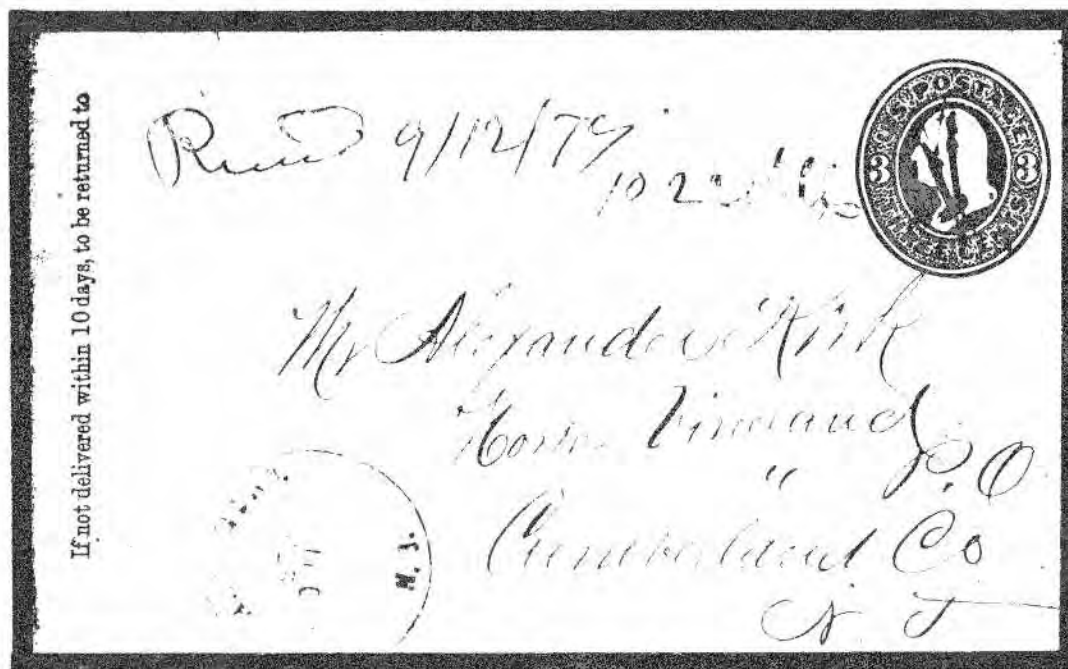 If not delivered within 10 days, to be returned to
9/12/79
10
U.S. POSTAGE
3 3
THREE CENTS
Mr Alexander Kirk
Vineland
" P.O
Cumberland Co
N J
N. J.